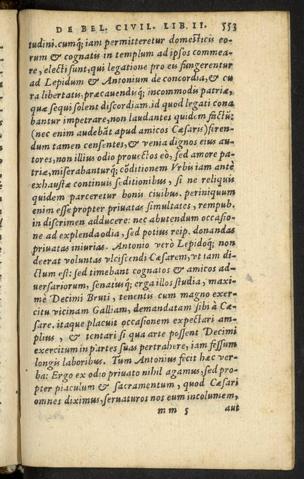 DE BEL. CIVIL. LIB. II. 553
tudini. cumq́; iam permitteretur domesticis eo-
rum & cognatis in templum ad ipsos commea-
re, electi sunt, qui legatione pro eis fungerentur
ad Lepidum & Antonium de concordia, & cu
ra libertatis. præcauendiq́; incommodis patriæ,
quæ sequi solent discordiam. id quod legati cona
bantur impetrare, non laudantes quidem factũ:
(nec enim audebãt apud amicos Cæsaris) feren-
dum tamen censentes, & venia dignos eius au-
tores, non illius odio prouectos eò, sed amore pa-
triæ, miserabanturq́; cõditionem Vrbis iam antè
exhaustæ continuis seditionibus, si ne reliquis
quidem parceretur bonis ciuibus. periniquum
enim esse propter priuatas simultates, rempub.
in discrimen adducere: nec abutendum occasio-
ne ad explenda odia, sed potius reip. donandas
priuatas iniurias. Antonio verò Lepidoq́; non
deerat voluntas vlciscendi Cæsarem, vt iam di-
ctum est: sed timebant cognatos & amicos ad-
uersariorum, senatusq́; erga illos studia, maxi-
mè Decimi Bruti, tenentis cum magno exer-
citu vicinam Galliam, demandatam sibi à Cæ-
sare. itaque placuit occasionem expectari am-
plius, & tentari si qua arte possent Decimi
exercitum in partes suas pertrahere, iam fessum
longis laboribus. Tum Antonius fecit hæc ver-
ba: Ergo ex odio priuato nihil agamus, sed pro-
pter piaculum & sacramentum, quod Cæsari
omnes diximus, seruaturos nos eum incolumem,
mm 5 aut